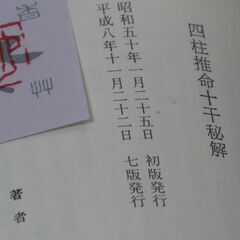 四柱推命十干秘解
昭和五十年一月二十五日 初版発行
平成八年十一月二十二日 七版発行
著者